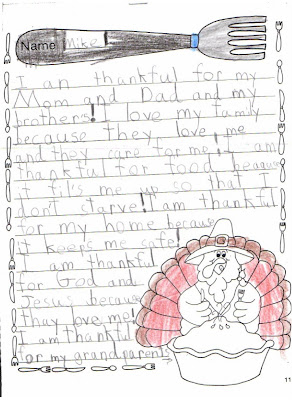 Name Mike
I am thankful for my
Mom and Dad and my
brothers! I love my family
because they love me
and they care for me! I am
thankful for food beause
it fil's me up so that I
don't starve! I am thankful
for my home because
it keeps me safe!
I am thankful
for God and
Jesus because
thay love me!
I am thankful
for my grandparents
11